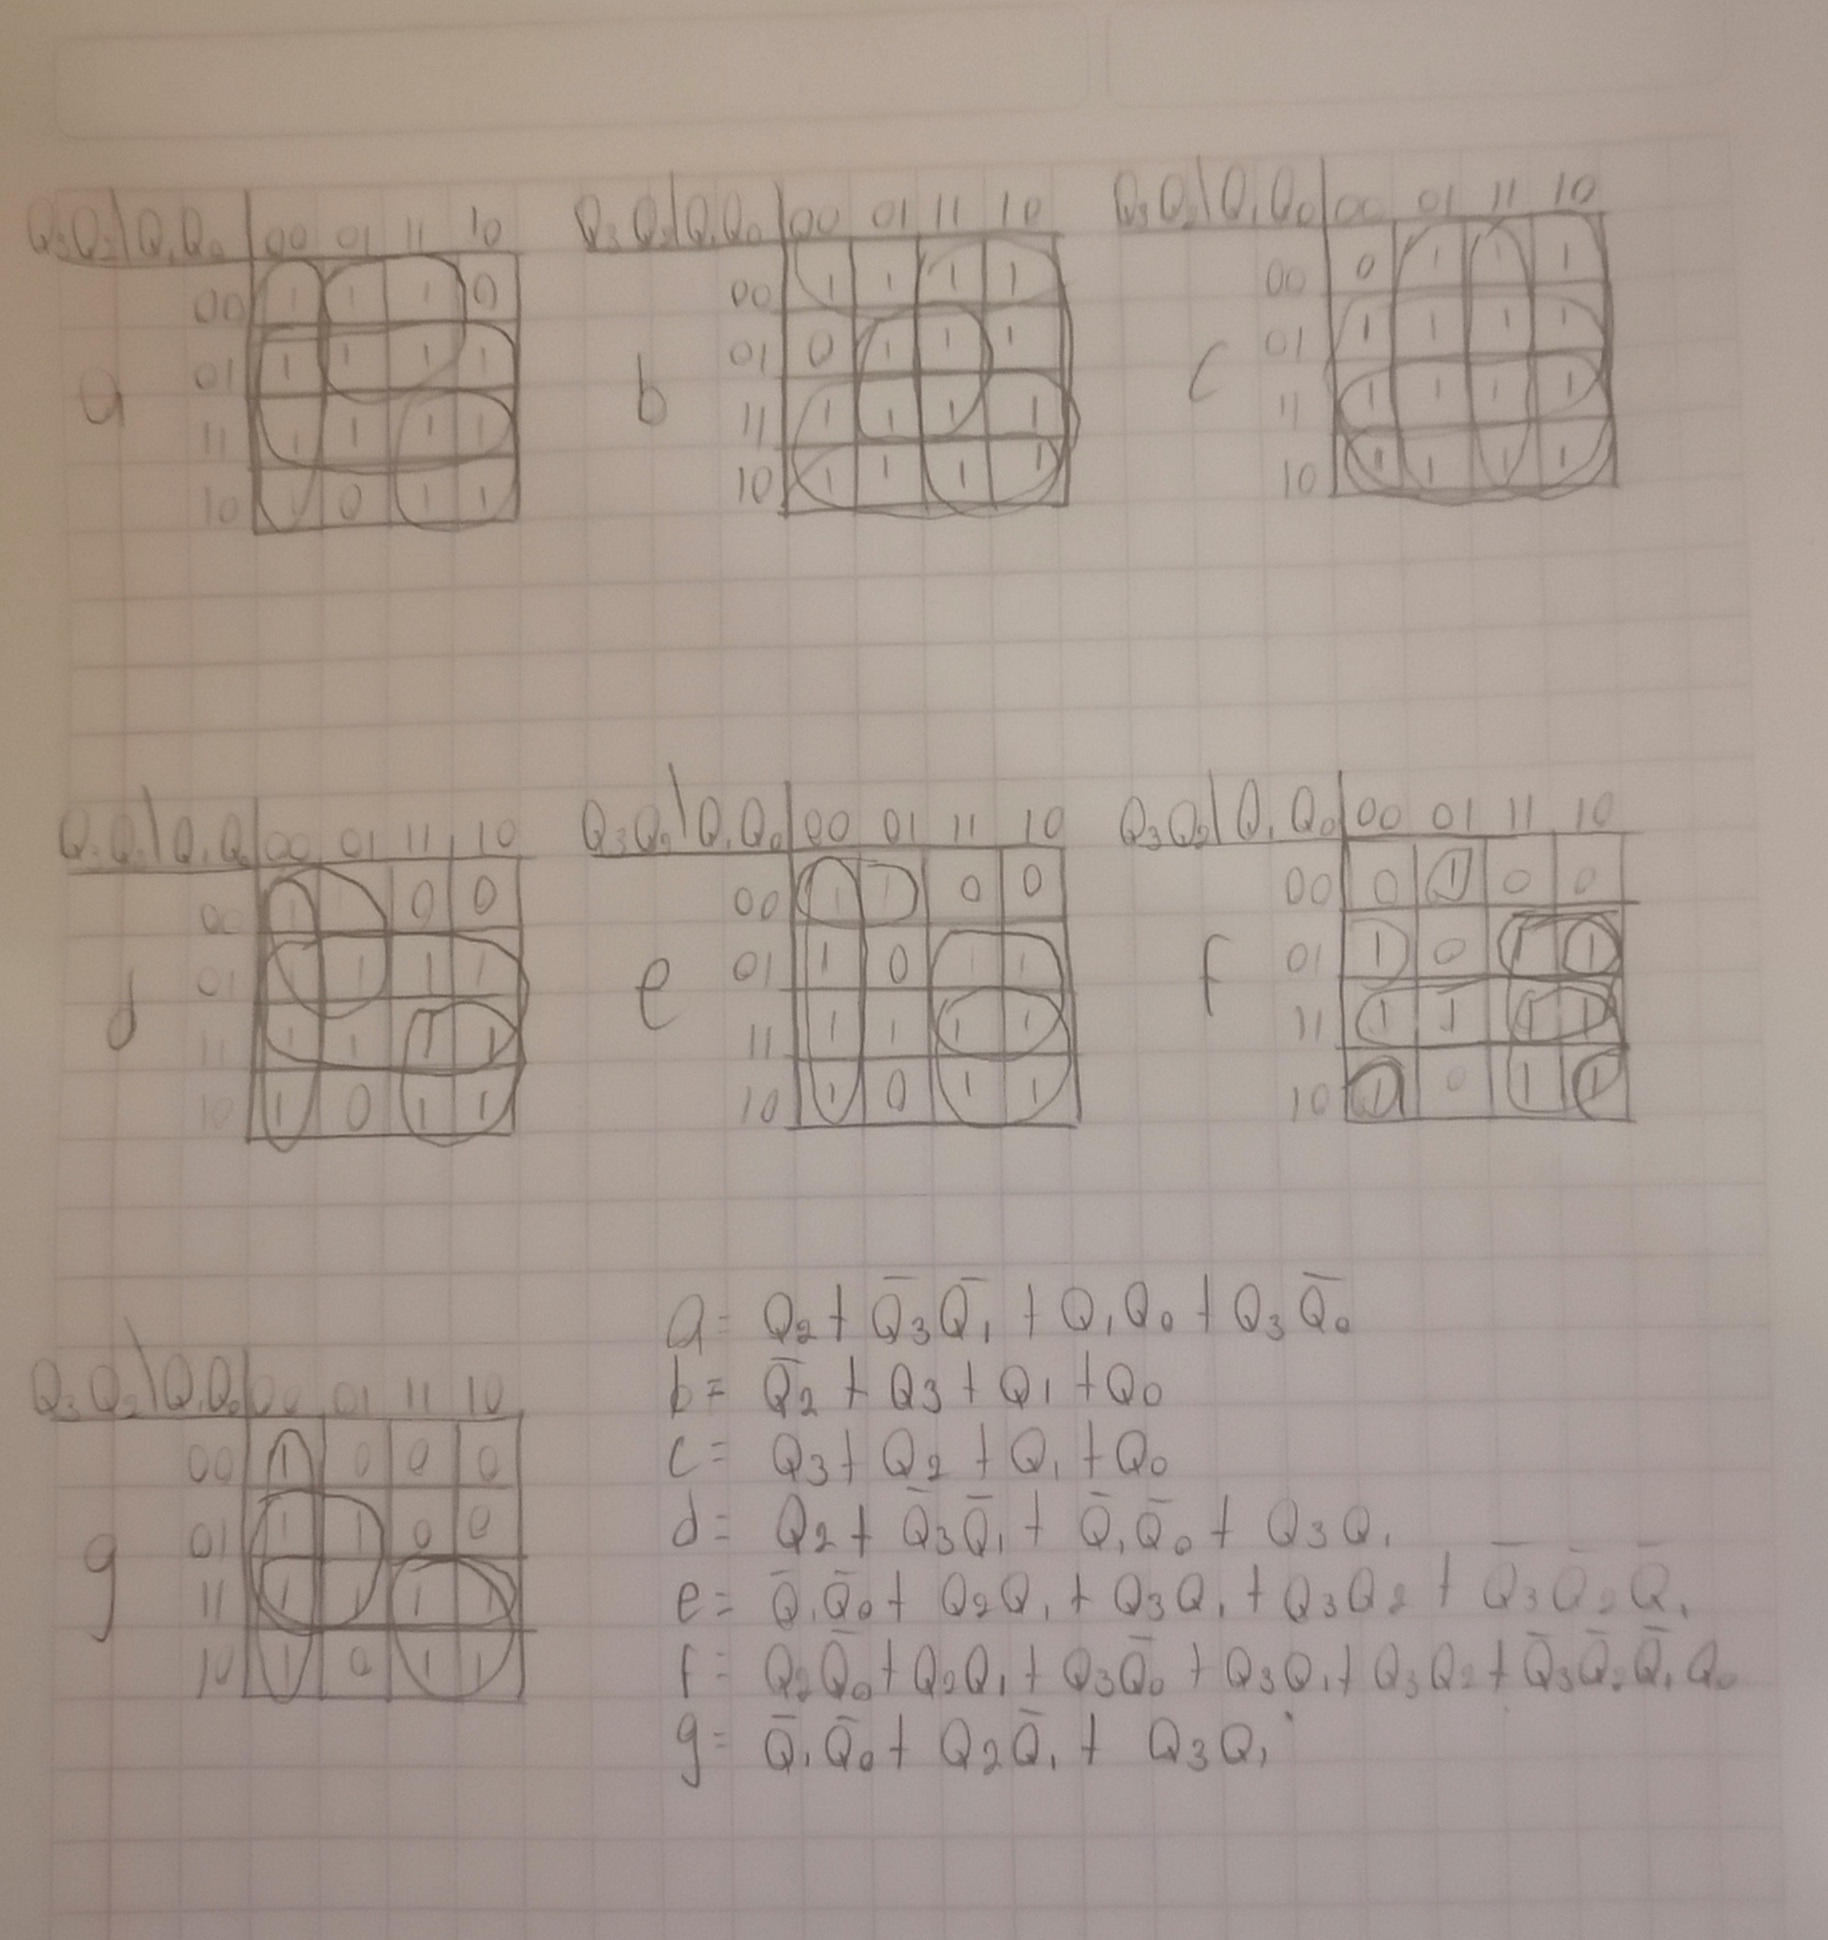 Q₃Q₂\Q₁Q₀ 00 01 11 10
00 1 1 1 0
01 1 1 1 1
11 1 1 1 1
10 1 0 1 1
a
Q₃Q₂\Q₁Q₀ 00 01 11 10
00 1 1 1 1
01 0 1 1 1
11 1 1 1 1
10 1 1 1 1
b
Q₃Q₂\Q₁Q₀ 00 01 11 10
00 0 1 1 1
01 1 1 1 1
11 1 1 1 1
10 1 1 1 1
c
Q₃Q₂\Q₁Q₀ 00 01 11 10
00 1 1 0 0
01 1 1 1 1
11 1 1 1 1
10 1 0 1 1
d
Q₃Q₂\Q₁Q₀ 00 01 11 10
00 1 1 0 0
01 1 0 1 1
11 1 1 1 1
10 1 0 1 1
e
Q₃Q₂\Q₁Q₀ 00 01 11 10
00 0 1 0 0
01 1 0 1 1
11 1 1 1 1
10 1 0 1 1
f
Q₃Q₂\Q₁Q₀ 00 01 11 10
00 1 0 0 0
01 1 1 0 0
11 1 1 1 1
10 1 0 1 1
g
a = Q₂ + Q̅₃Q̅₁ + Q₁Q₀ + Q₃Q̅₀
b = Q̅₂ + Q₃ + Q₁ + Q₀
c = Q₃ + Q₂ + Q₁ + Q₀
d = Q₂ + Q̅₃Q̅₁ + Q̅₁Q̅₀ + Q₃Q₁
e = Q̅₁Q̅₀ + Q₂Q₁ + Q₃Q₁ + Q₃Q₂ + Q̅₃Q̅₂Q̅₁
f = Q₂Q̅₀ + Q₂Q₁ + Q₃Q̅₀ + Q₃Q₁ + Q₃Q₂ + Q̅₃Q̅₂Q̅₁Q₀
g = Q̅₁Q̅₀ + Q₂Q̅₁ + Q₃Q₁